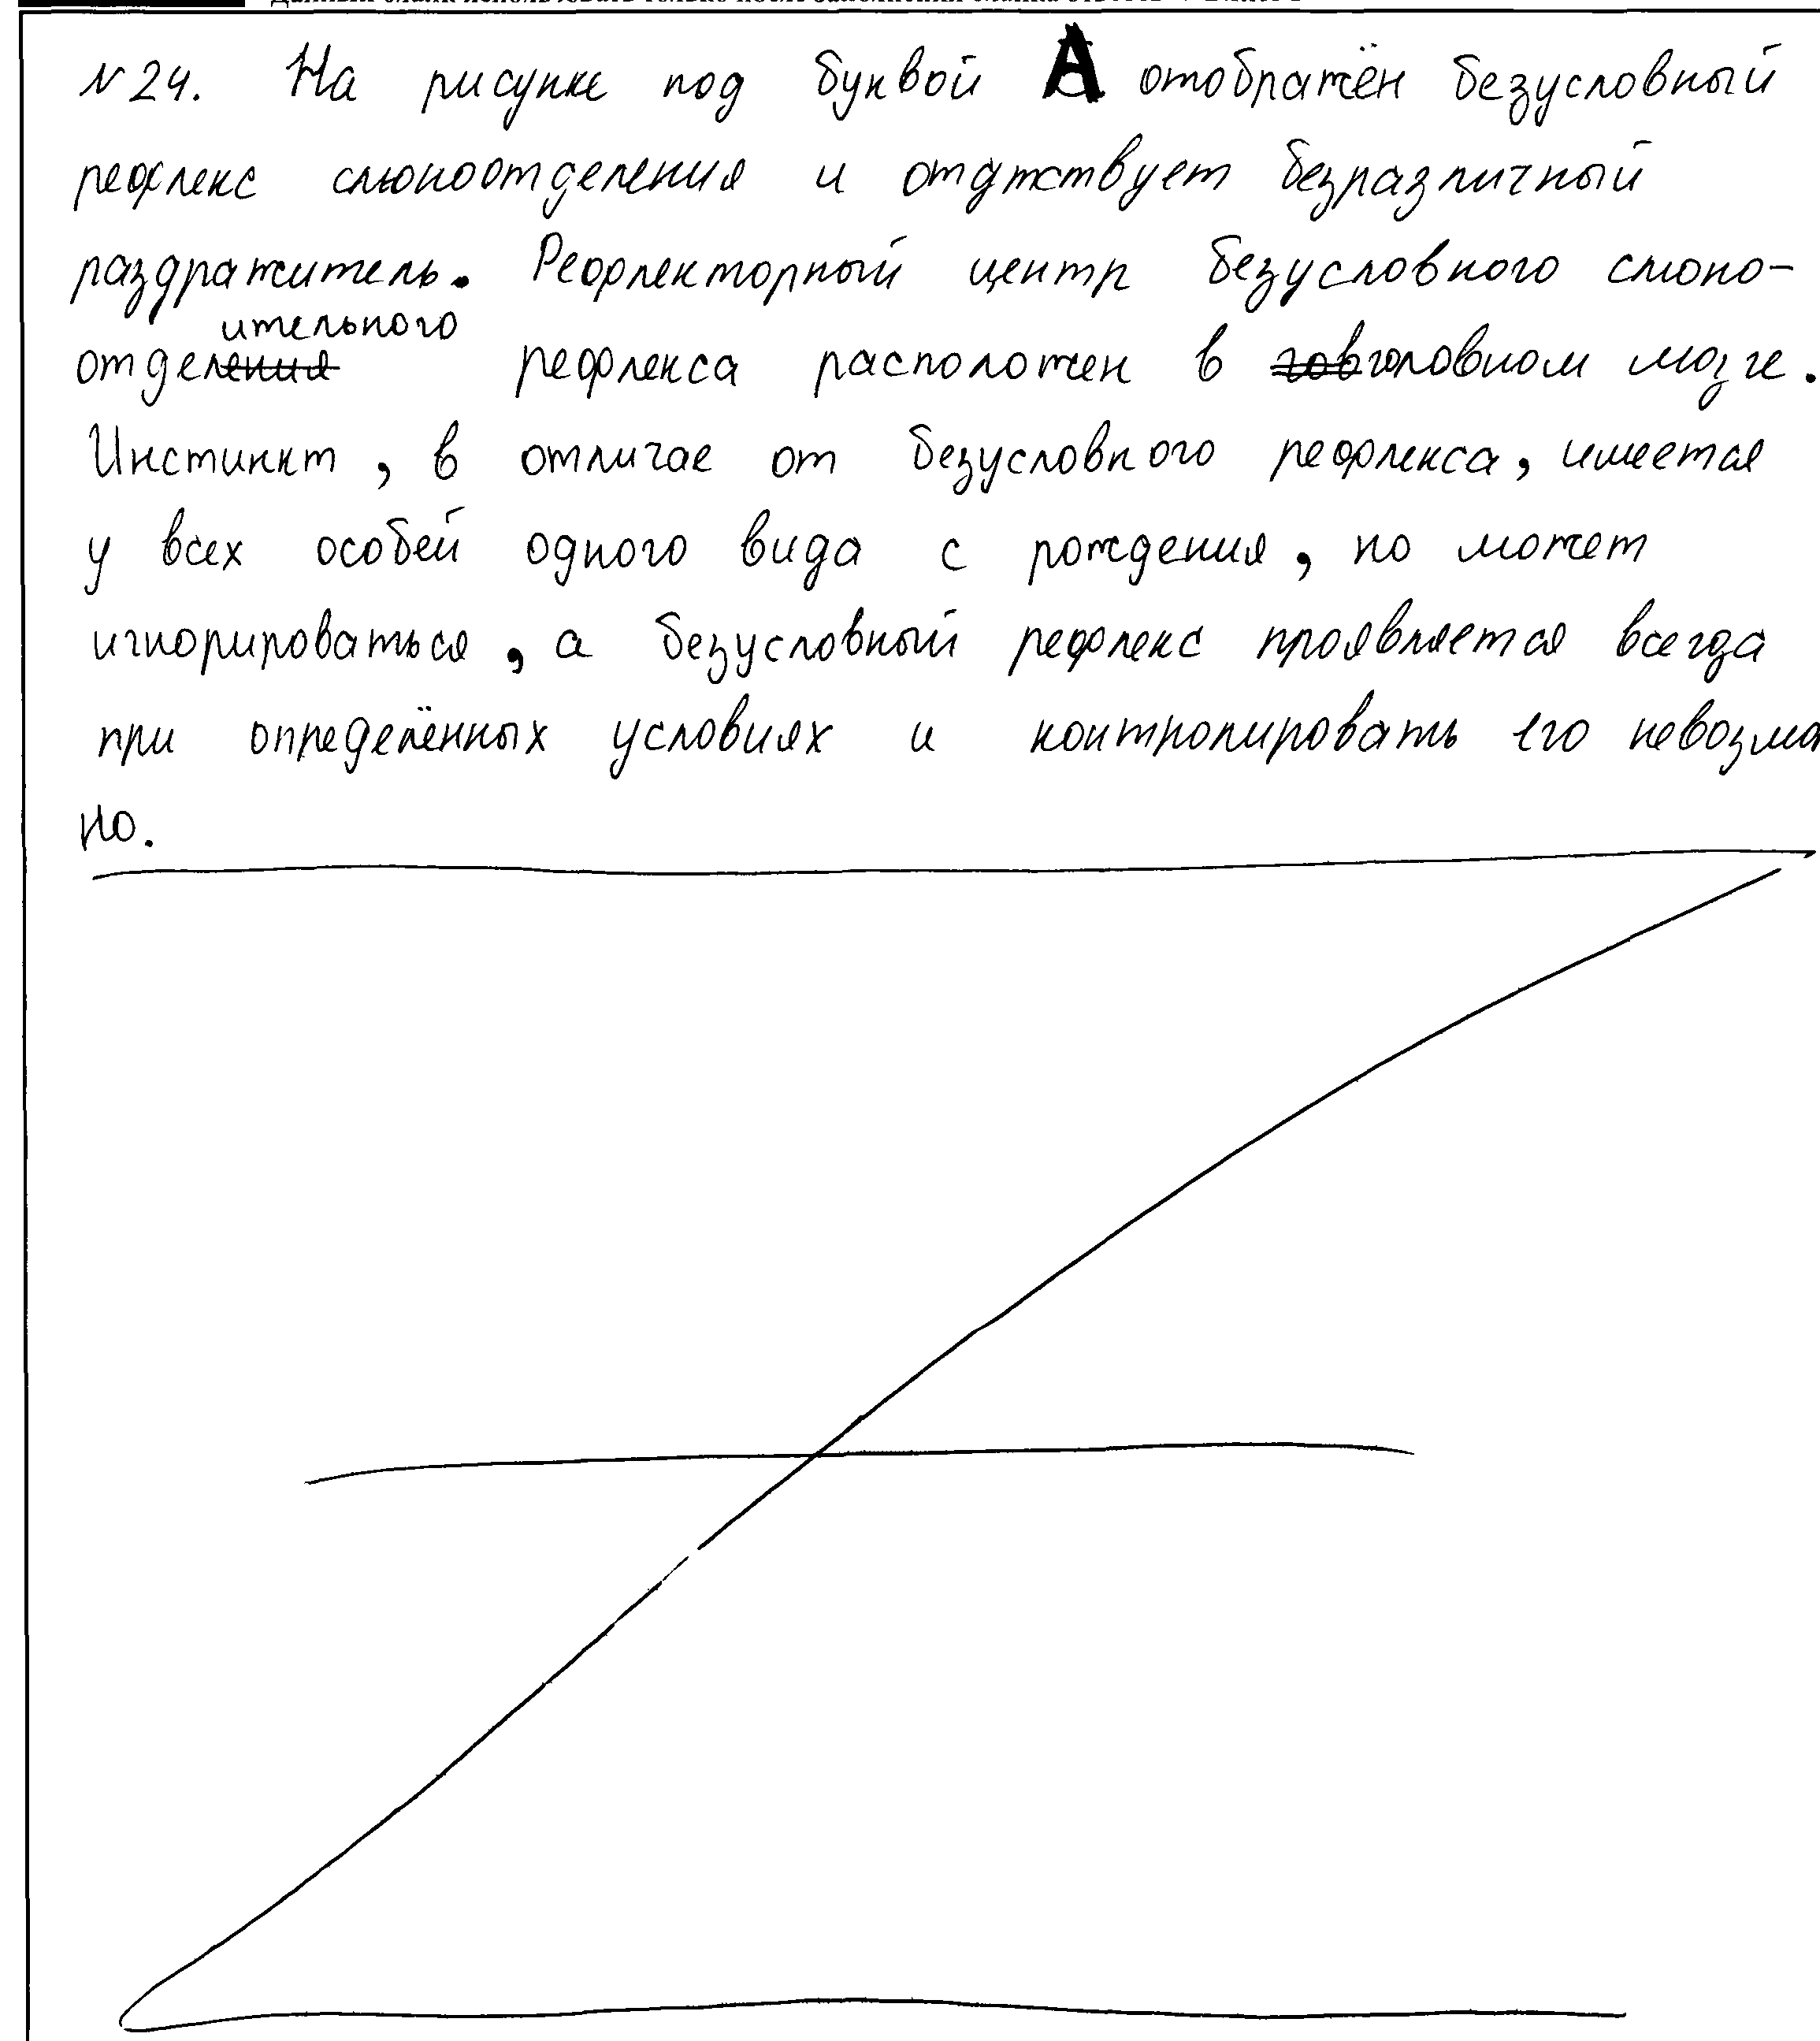 № 24. На рисунке под буквой А отображён безусловный
рефлекс слюноотделения и отдтствует безразличный
раздражитель. Рефлекторный центр безусловного слюно-
ительного
отделения рефлекса расположен в головном мозге.
Инстинкт, в отличае от безусловного рефлекса, имеется
у всех особей одного вида с рождения, но может
игнорироваться, а безусловный рефлекс проявляется всегда
при определённых условиях и контролировать его невозмо
но.